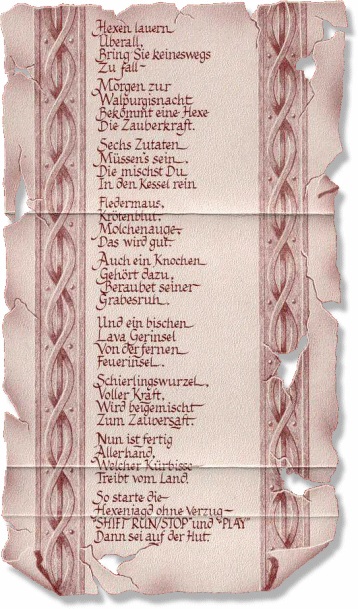 Hexen lauern
Überall,
Bring Sie keineswegs
Zu fall-
Morgen zur
Walpurgisnacht
Bekommt eine Hexe
Die Zauberkraft.
Sechs Zutaten
Müssen's sein.
Die mischst Du
In den Kessel rein
Fledermaus,
Krötenblut.
Molchenauge-
Das wird gut.
Auch ein Knochen
Gehört dazu,
Beraubet seiner
Grabesruh.
Und ein bischen
Lava Gerinsel
Von der fernen
Feuerinsel.
Schierlingswurzel,
Voller Kraft,
Wird beigemischt
Zum Zaubersaft.
Nun ist fertig
Allerhand,
Welcher Kürbisse
Treibt vom Land.
So starte die
Hexenjagd ohne Verzug-
"SHIFT RUN/STOP" und "PLAY"
Dann sei auf der Hut.